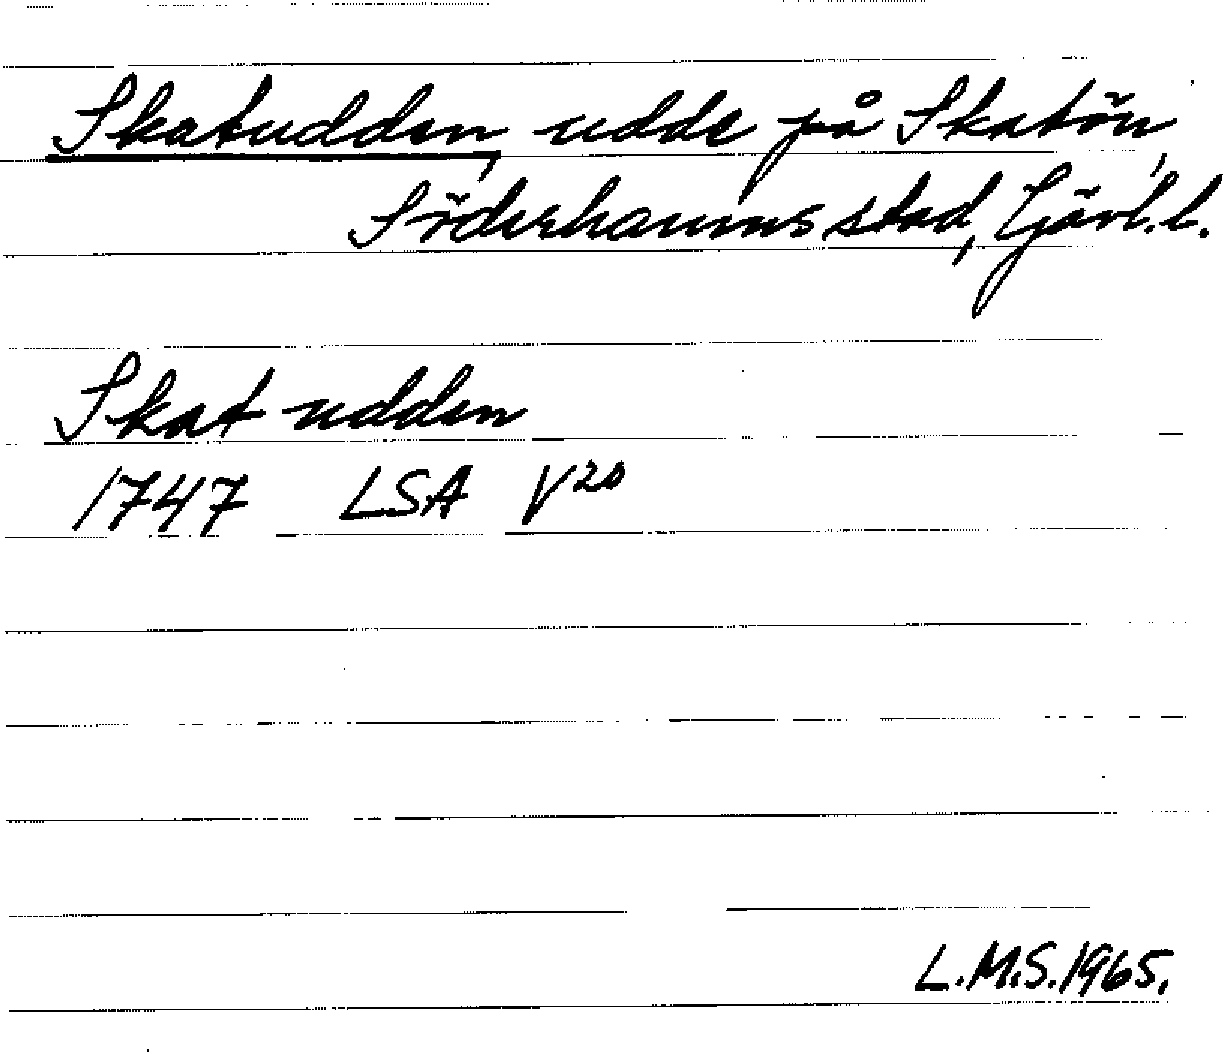 Skatudden, udde på Skatön,
Söderhamns stad, Gävl.l.
Skat udden
1747 LSA V20
L.M.S.1965.